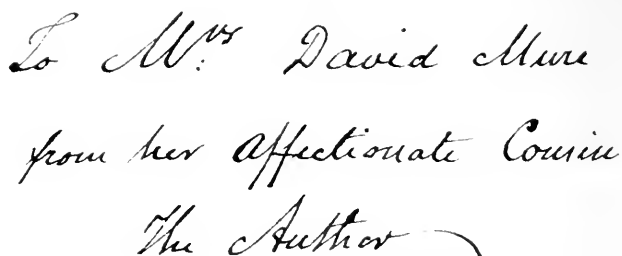 To Mrs. David Mure
from her affectionate Cousin
The Author